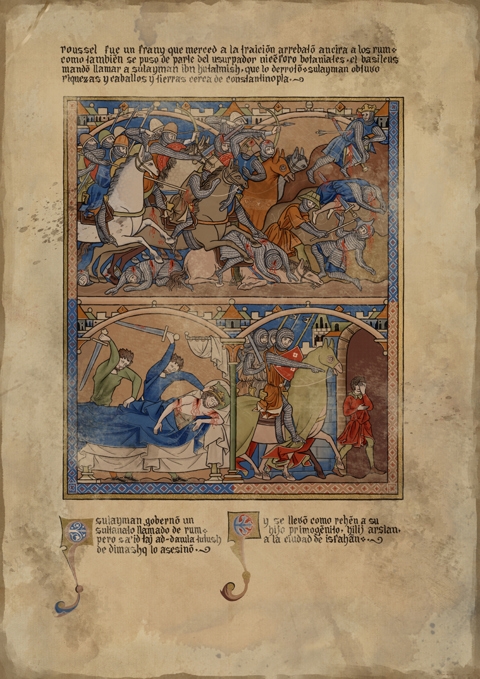 roussel fue un frany que merced a la traición arrebató ancira a los rum·
como también se puso de parte del usurpador nicéforo botaniates, el basileus
mandó llamar a sulayman ibn kutalmish, que lo derrotó·sulayman obtuvo
riquezas y caballos y tierras cerca de constantinopla·
sulayman gobernó un
sultanato llamado de rum·
pero sa'id taj ad-dawla tutush
de dimashq lo asesinó·
y se llevó como rehén a su
hijo primogénito, kilij arslan,
a la ciudad de isfahan·